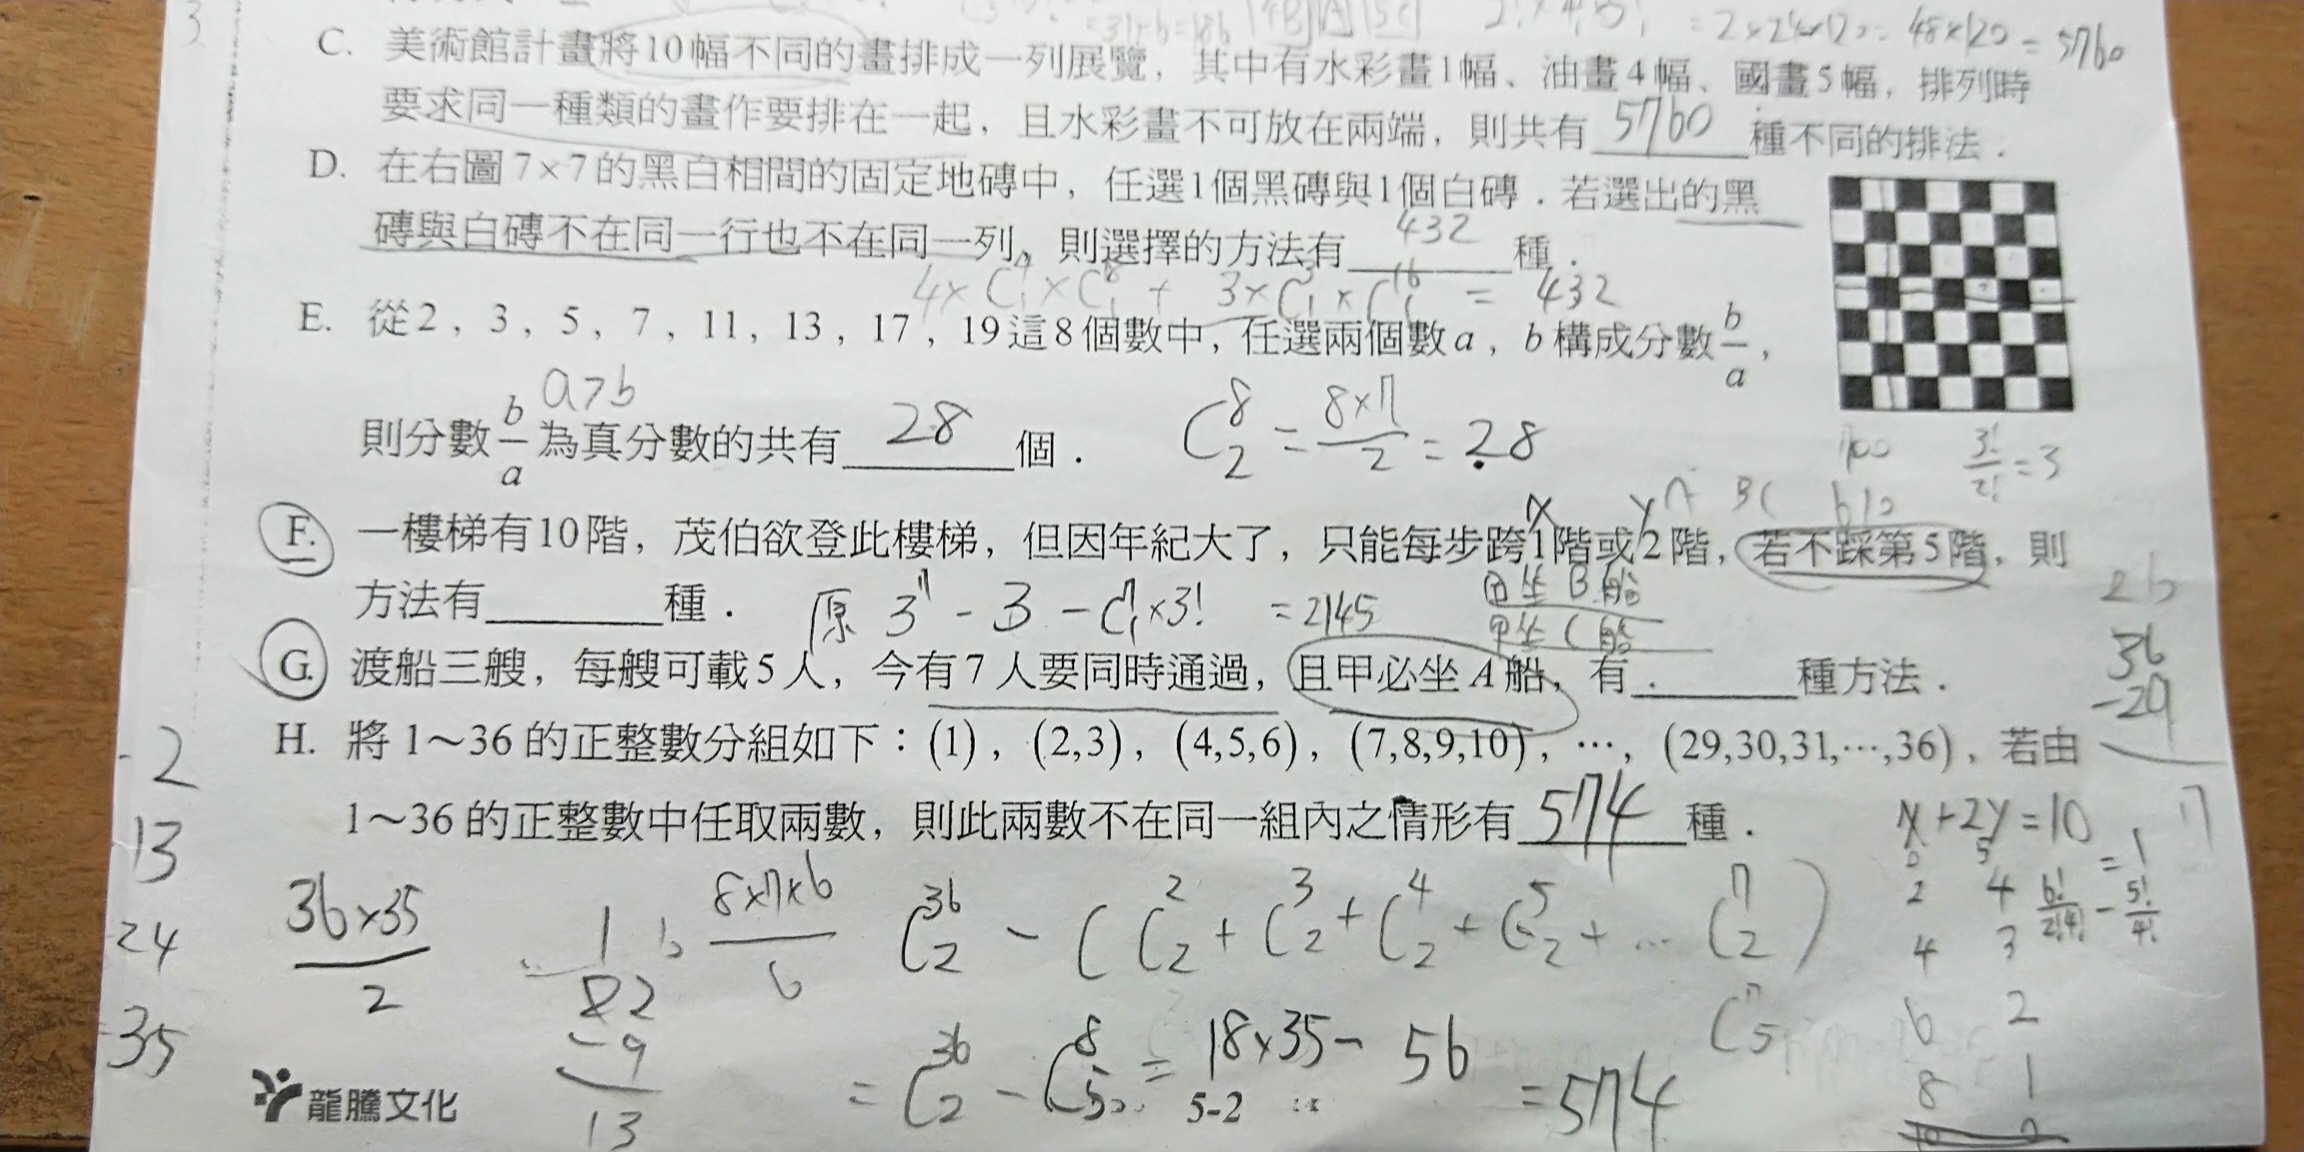 = 2×24×120 = 48×120 = 5760
C. 美術館計畫將10幅不同的畫排成一列展覽，其中有水彩畫1幅、油畫4幅、國畫5幅，排列時
要求同一種類的畫作要排在一起，且水彩畫不可放在兩端，則共有 5760 種不同的排法．
D. 在右圖7×7的黑白相間的固定地磚中，任選1個黑磚與1個白磚．若選出的黑
磚與白磚不在同一行也不在同一列，則選擇的方法有 432 種．
= 432
E. 從2，3，5，7，11，13，17，19這8個數中，任選兩個數a，b構成分數b/a，
a>b
則分數b/a為真分數的共有 28 個．
C⁸₂ = 8×7/2 = 28
3!/2! = 3
F. 一樓梯有10階，茂伯欲登此樓梯，但因年紀大了，只能每步跨1階或2階，若不踩第5階，則
方法有______種．
原 3⁷ - 3 - C⁷₁×3! = 2145
甲坐B船
甲坐C船
G. 渡船三艘，每艘可載5人，今有7人要同時通過，且甲必坐A船，有______種方法．
36
-29
7
H. 將1～36的正整數分組如下：(1)，(2,3)，(4,5,6)，(7,8,9,10)，…，(29,30,31,…,36)，若由
1～36的正整數中任取兩數，則此兩數不在同一組內之情形有 574 種．
x+2y=10
0 5 = 1
2 4 6!/2!4! - 5!/4!
4 3
6 2
8 1
10 0
-2
13
24
35
36×35/2
8×7×6/6
C³⁶₂ - (C²₂ + C³₂ + C⁴₂ + C⁵₂ + … C⁷₂)
82
-9
13
= C³⁶₂ - C⁸₅ = 18×35 - 56 = 574
C⁷₅
龍騰文化
5-2